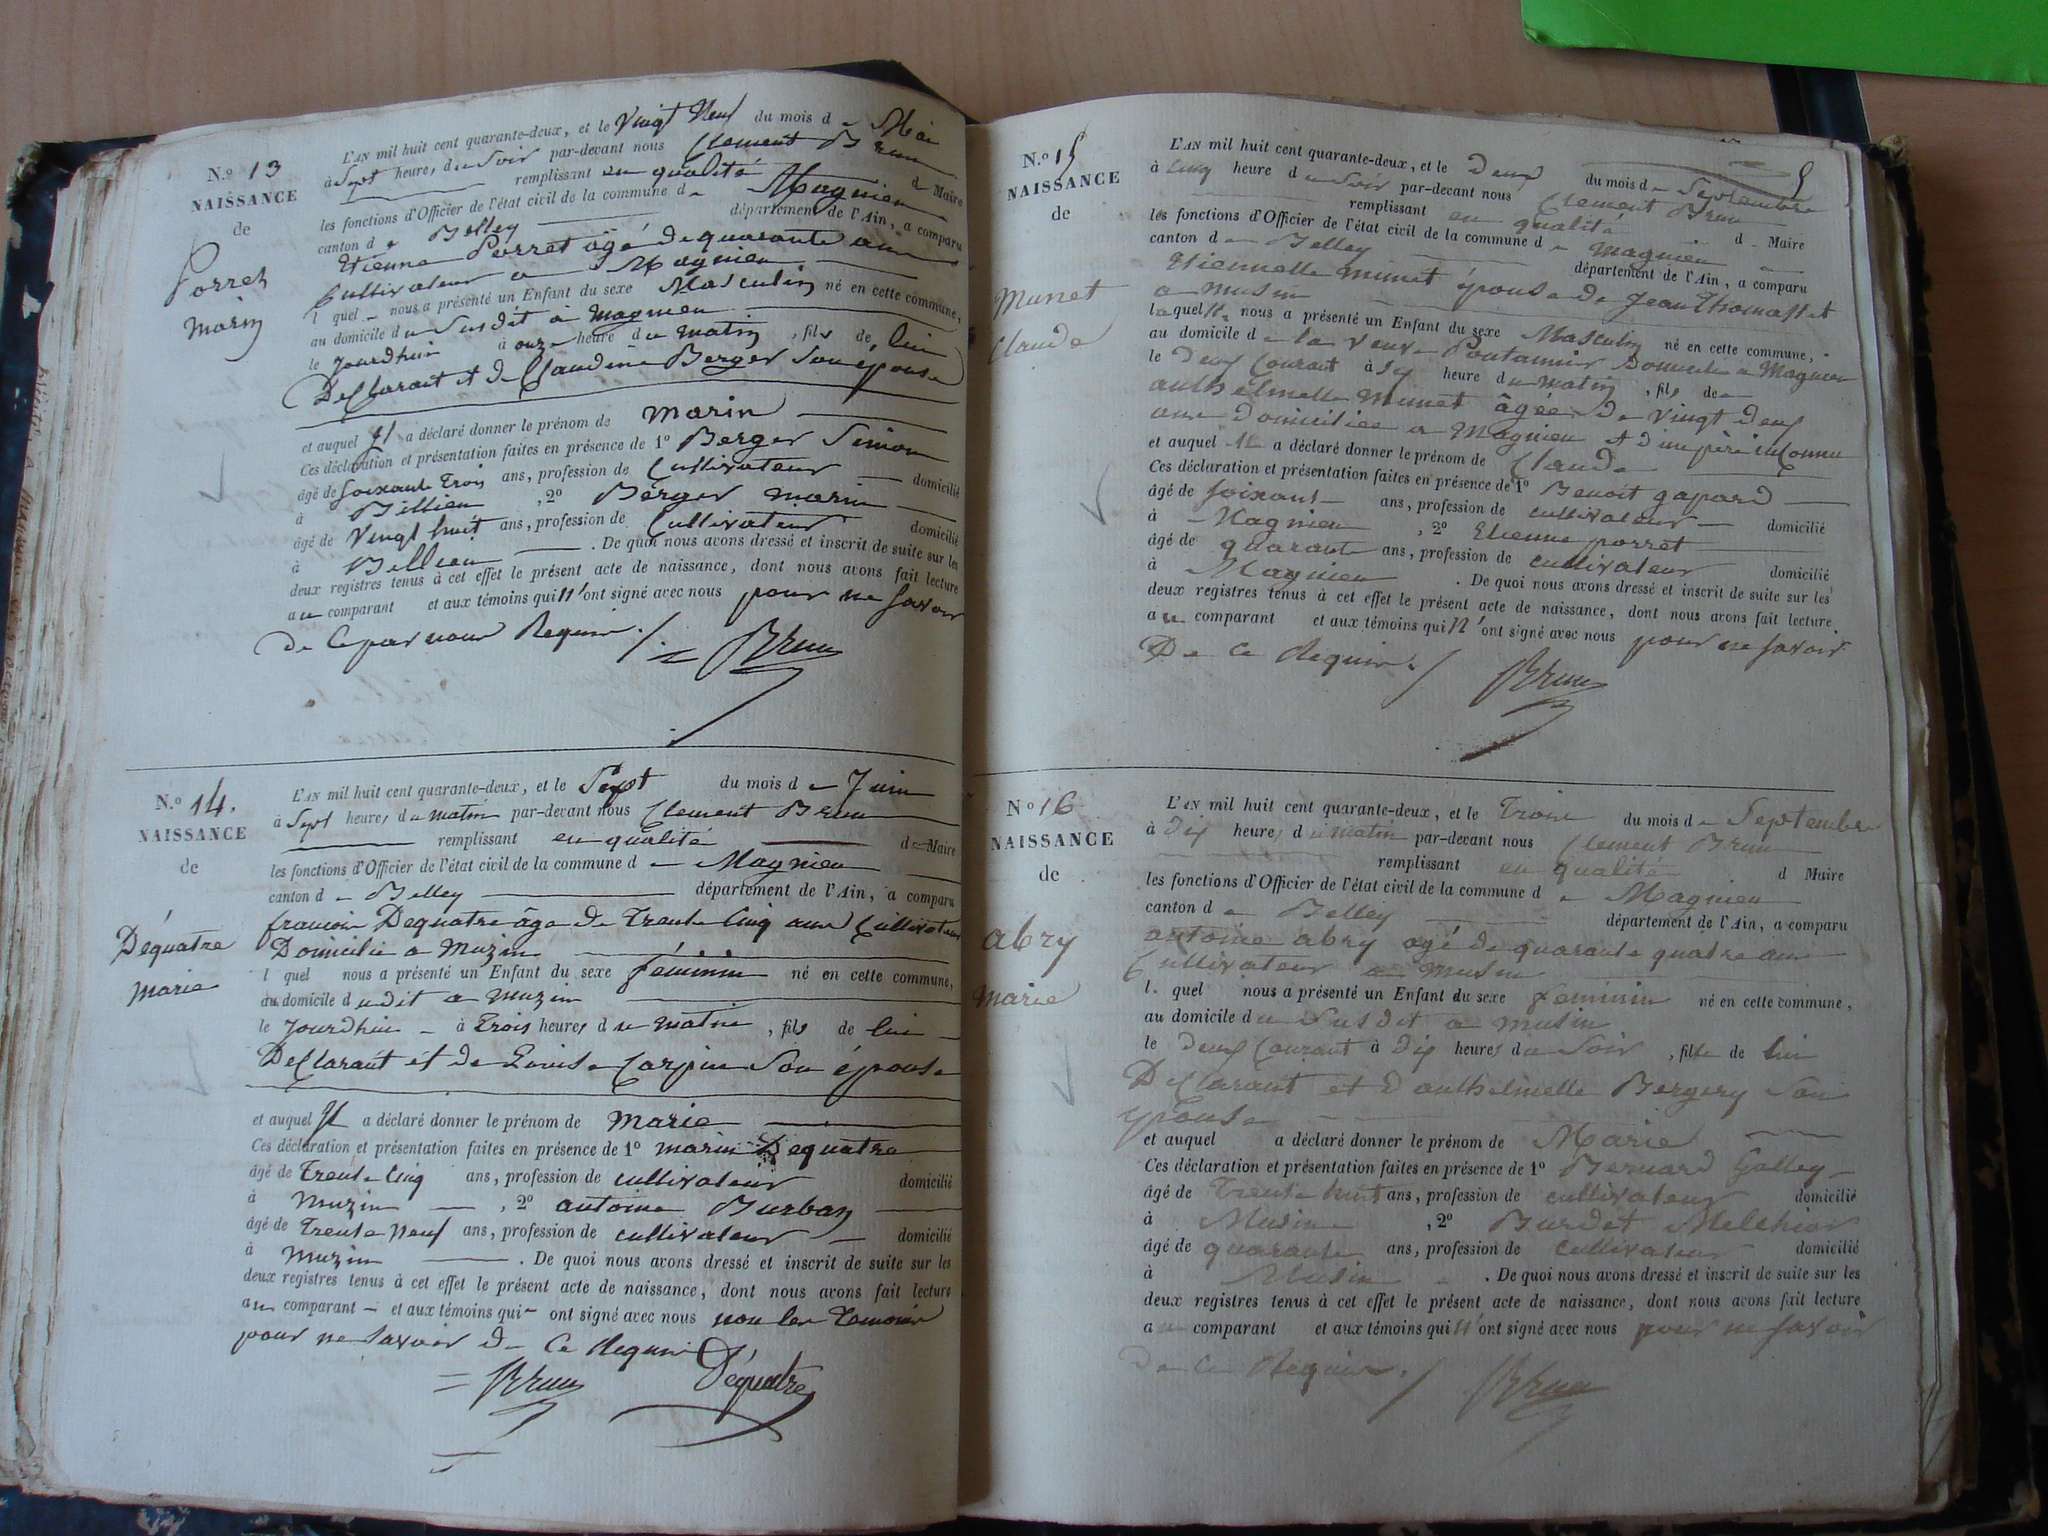 N.º 13
NAISSANCE
de
Porret
marin
L'AN mil huit cent quarante-deux, et le Vingt Neuf du mois de Mai
à Sept heures du Soir par-devant nous Clement Brun
remplissant en qualité de Maire
les fonctions d'Officier de l'état civil de la commune de Magnieu
canton de Belley département de l'Ain, a comparu
Etienne Porret âgé de quarante ans
Cultivateur a Magnieu
lequel nous a présenté un Enfant du sexe Masculin né en cette commune,
au domicile du Susdit a magnieu
le Jourdhui à onze heure du matin, fils de lui
Declarant et de Claudine Berger Son épouse
et auquel Il a déclaré donner le prénom de marin
Ces déclaration et présentation faites en présence de 1º Berger Simon
âgé de Soixante Trois ans, profession de Cultivateur domicilié
à Billieu, 2º Berger marin
âgé de Vingt huit ans, profession de Cultivateur domicilié
à Billieu. De quoi nous avons dressé et inscrit de suite sur les
deux registres tenus à cet effet le présent acte de naissance, dont nous avons fait lecture
au comparant et aux témoins qui n'ont signé avec nous pour ne Savoir
de Ce par nous Requis ./.
Brun
N.º 14.
NAISSANCE
de
Déquatre
marie
L'AN mil huit cent quarante-deux, et le Sept du mois de Juin
à Sept heures du matin par-devant nous Clement Brun
remplissant en qualité de Maire
les fonctions d'Officier de l'état civil de la commune de Magnieu
canton de Belley département de l'Ain, a comparu
francois Dequatre âge de Trente Cinq ans Cultivateur
Domicilie a Muzin
l quel nous a présenté un Enfant du sexe féminin né en cette commune,
au domicile dudit a muzin
le Jourdhui à Trois heures du matin, fils de lui
Declarant et de Louise Carpin Son épouse
et auquel Il a déclaré donner le prénom de marie
Ces déclaration et présentation faites en présence de 1º marin Dequatre
âgé de Trente Cinq ans, profession de cultivateur domicilié
à muzin, 2º antoine Burban
âgé de Trente Neuf ans, profession de cultivateur domicilié
à muzin. De quoi nous avons dressé et inscrit de suite sur les
deux registres tenus à cet effet le présent acte de naissance, dont nous avons fait lecture
au comparant et aux témoins qui ont signé avec nous non les Temoins
pour ne Savoir de Ce Requis
Brun Déquatre
N.º 15
NAISSANCE
de
Munet
Claude
5
L'AN mil huit cent quarante-deux, et le Deux du mois de Septembre
à Cinq heure du Soir par-devant nous Clement Brun
remplissant en qualité d Maire
les fonctions d'Officier de l'état civil de la commune de Magnieu
canton de Belley département de l'Ain, a comparu
Etiennette munet épouse de Jean Thomasset
a musin
laquelle nous a présenté un Enfant du sexe Masculin né en cette commune,
au domicile de la veuve Domicilie a Magnieu
le Deux Courant à Six heure du matin, fils de
anthelmette munet âgée de Vingt deux
ans Domiciliée a Magnieu et d'un père inConnu
et auquel a déclaré donner le prénom de Claude
Ces déclaration et présentation faites en présence de 1º Benoit gapard
âgé de Soixante ans, profession de cultivateur domicilié
à Magnieu, 2º Etienne porret
âgé de quarante ans, profession de cultivateur domicilié
à Magnieu. De quoi nous avons dressé et inscrit de suite sur les
deux registres tenus à cet effet le présent acte de naissance, dont nous avons fait lecture
au comparant et aux témoins qui n'ont signé avec nous pour ne Savoir
De Ce Requis ./
Brun
N.º 16
NAISSANCE
de
abry
marie
L'AN mil huit cent quarante-deux, et le Trois du mois de Septembre
à Dix heures du matin par-devant nous Clement Brun
remplissant en qualité d Maire
les fonctions d'Officier de l'état civil de la commune de Magnieu
canton de Belley département de l'Ain, a comparu
antoine abry agé de quarante quatre ans
Cultivateur a musin
l. quel nous a présenté un Enfant du sexe feminin né en cette commune,
au domicile du Susdit a musin
le Deux Courant à Dix heures du Soir, fille de lui
Declarant et d'anthelmette Bergery Son
epouse
et auquel a déclaré donner le prénom de Marie
Ces déclaration et présentation faites en présence de 1º Bernard Golley
âgé de Trente huit ans, profession de cultivateur domicilié
à Musin, 2º Burdet Melchior
âgé de quarante ans, profession de cultivateur domicilié
à Musin. De quoi nous avons dressé et inscrit de suite sur les
deux registres tenus à cet effet le présent acte de naissance, dont nous avons fait lecture
au comparant et aux témoins qui n'ont signé avec nous pour ne Savoir
de Ce Requis ./
Brun